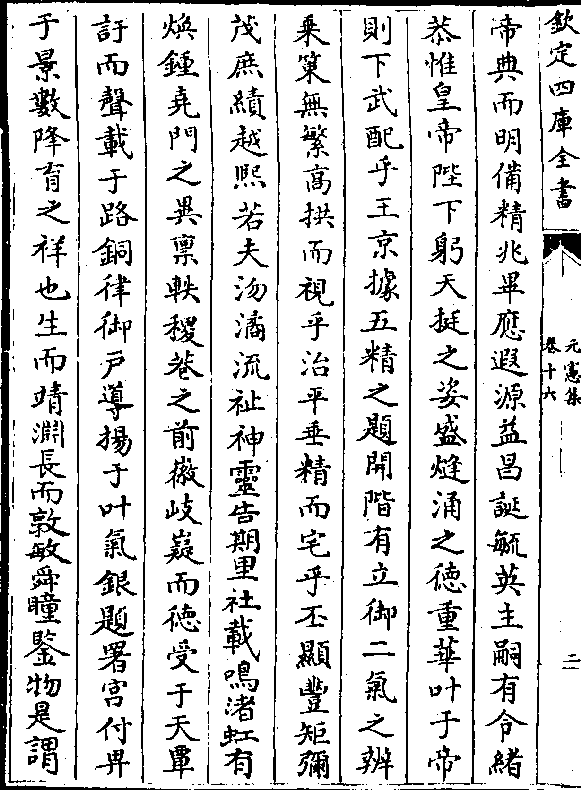 欽定四庫全書
元憲集
卷十六
二
帝典而明備精兆畢應遐源益昌誕毓英主嗣有令緒
恭惟皇帝陛下躬天挺之姿盛熢涌之德重華叶于帝
則下武配乎王京據五精之題開階有立御二氣之辨
乗箓無繁高拱而視乎治平垂精而宅乎丕顯豐矩彌
茂庶績越熙若夫沕潏流祉神靈告期里社載鳴渚虹有
煥鍾堯門之異禀軼稷巷之前徽岐嶷而徳受于天覃
訏而聲載于路銅律御戸導揚于叶氣銀題署宫付畀
于景數降育之祥也生而靖淵長而敦敏舜瞳鑒物是謂